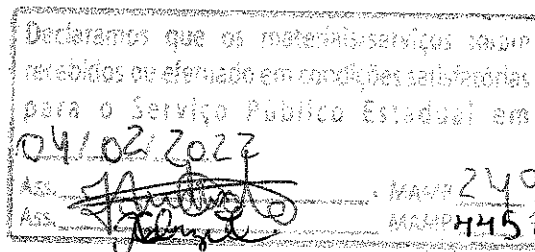 Declaramos que os materiais/serviços foram
recebidos ou efetuado em condições satisfatórias
para o Serviço Público Estadual em
04/02/2022
Ass. MASP 240
Ass. MASP 445